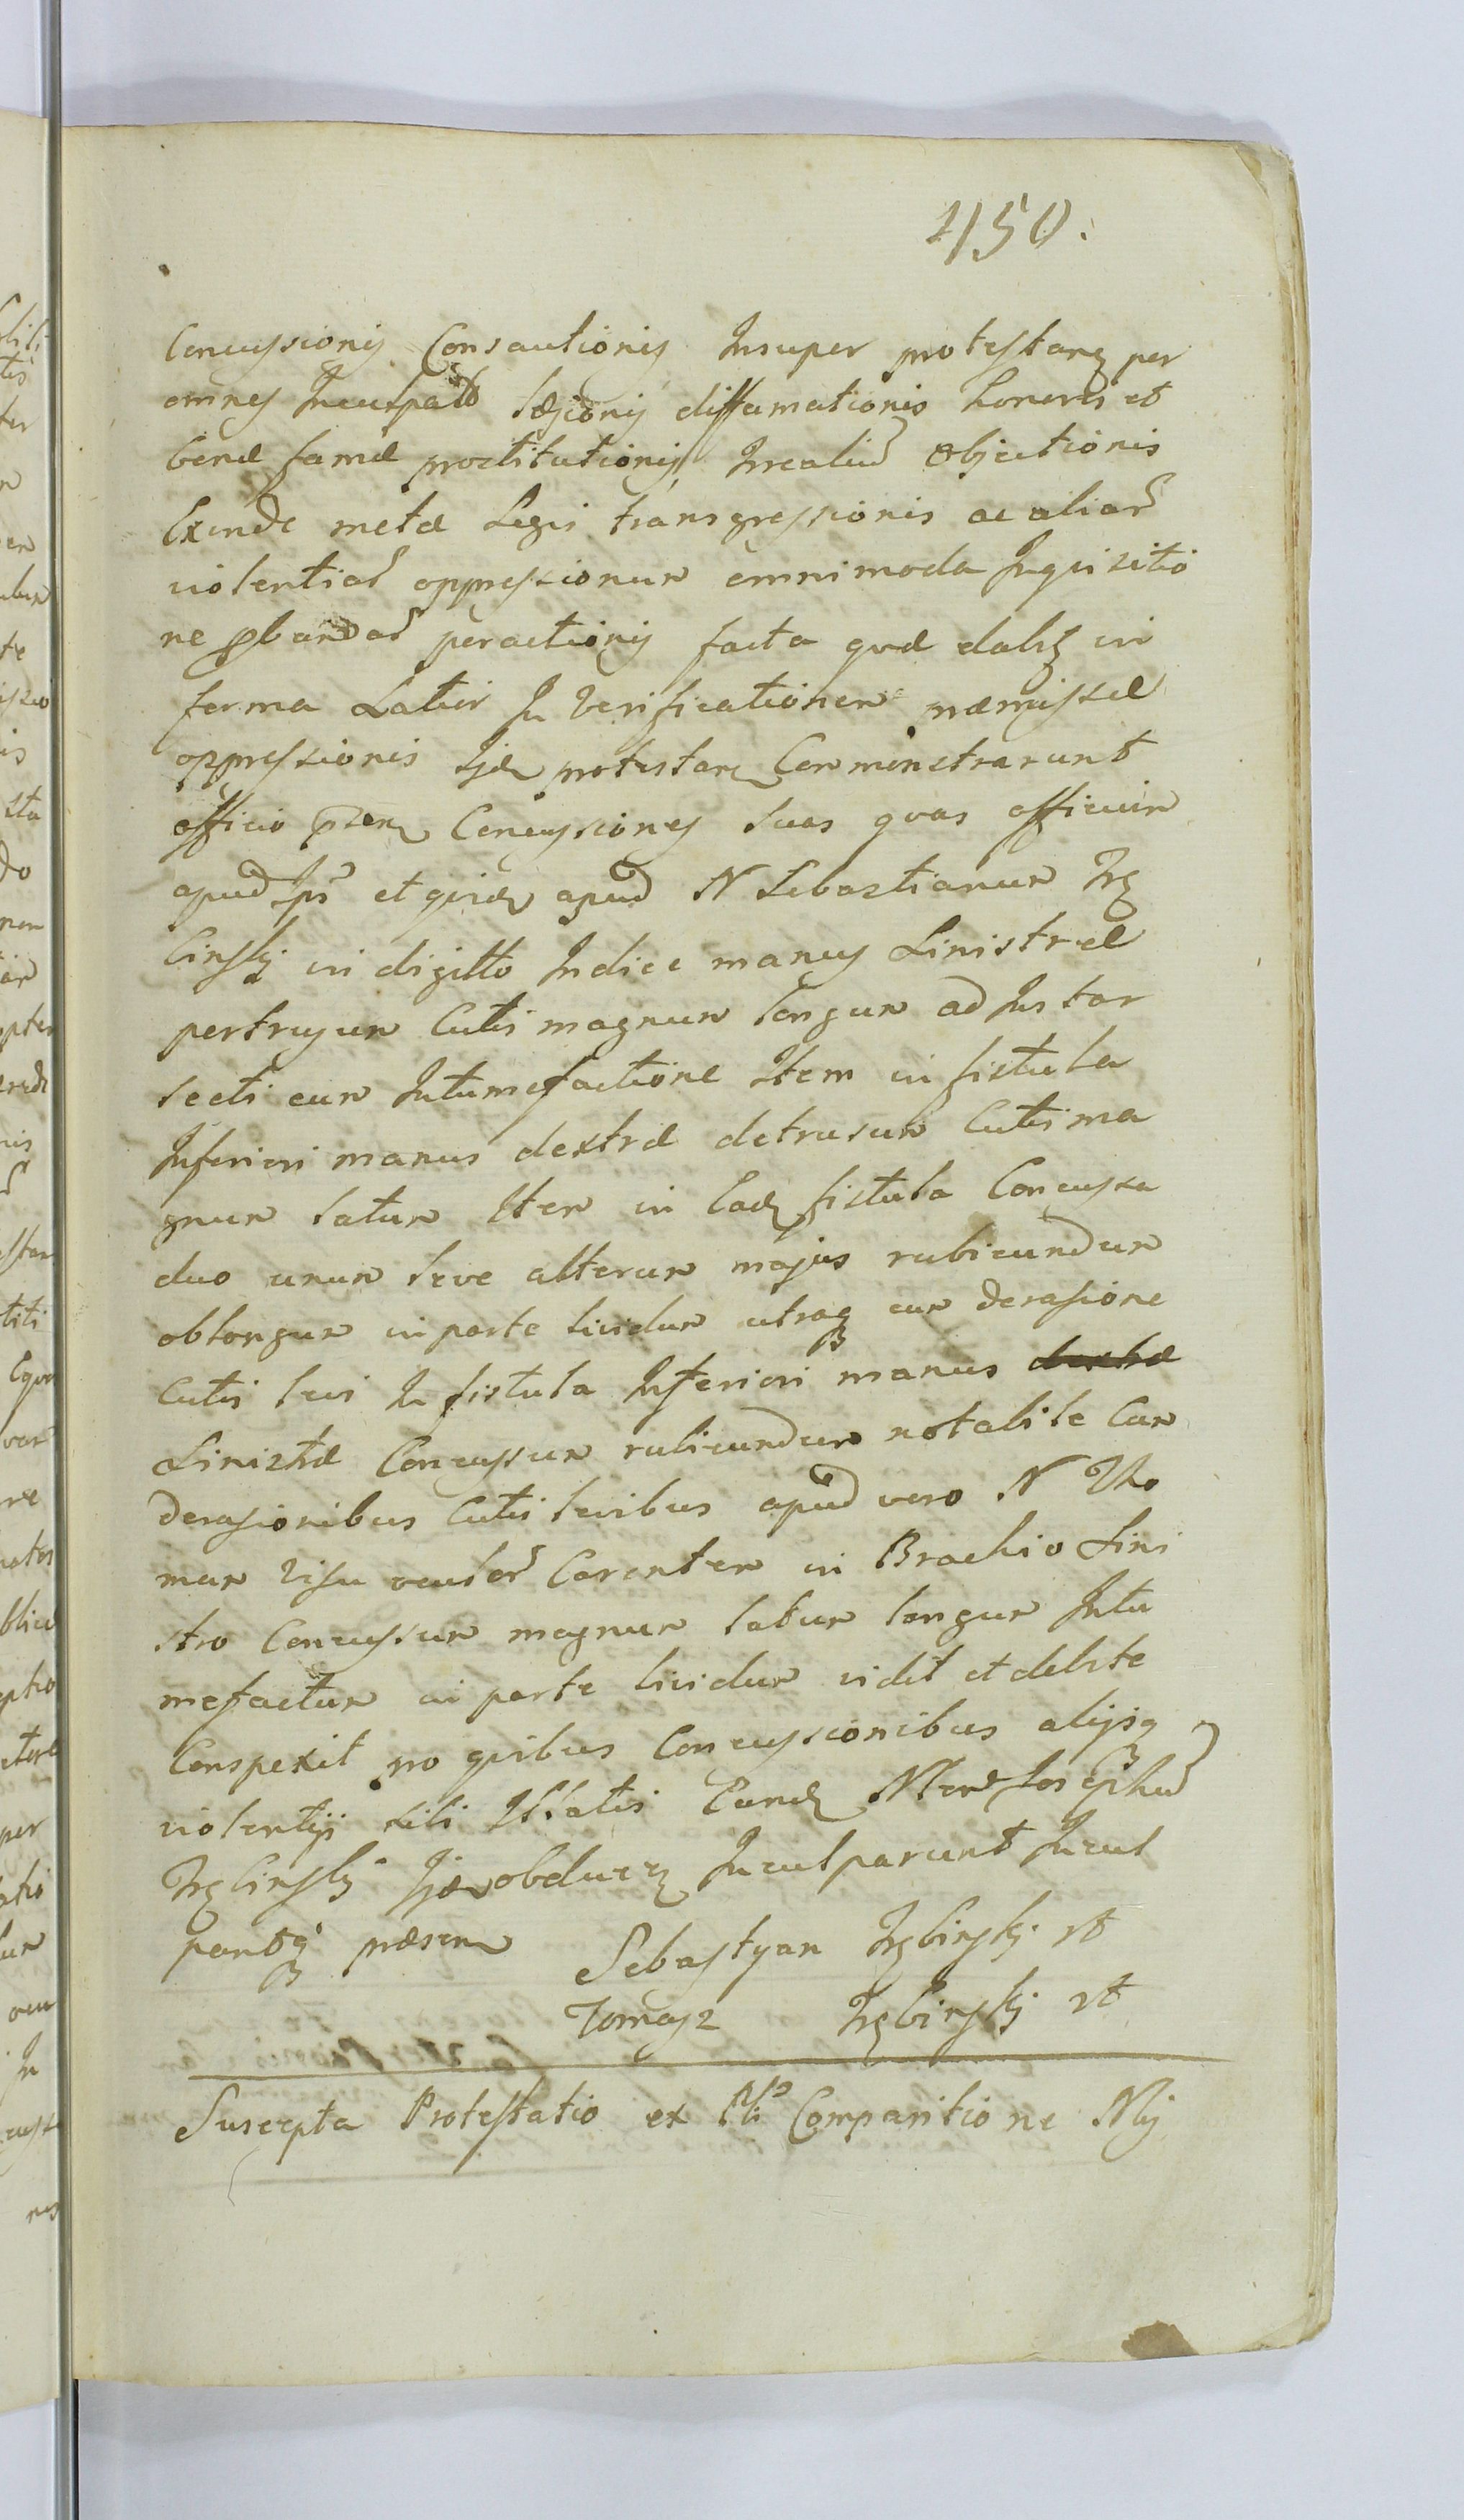 450.
Concussionis Consauctionis Insuper protestanz per
omnes Inculpatos læsionis diffamationis honoris et
benæ famæ prostitutionis, Irrealium Objectionis
Exinde metæ Legis transgressionis ac aliar
violentiar oppressionum omnimoda Inquisitio
ne pbandar peractionis facta quæ dabitz in
forma Latior In Verificationem præmissæ
oppressionis Ijdem protestanz Commonstrarunt
officio pnti Concussiones suas quas officium
apud Ips et quidem apud N Sebastianum Trz
Cinski in digitto Indice manus Sinistræ
pertrusum Cutis magnum longum ad Instar
secti cum Intumefactione Item in fistula
Inferiori manus dextræ detrusum Cutis ma
gnum latum Item in Eadem fistula Concussa
duo unum leve alterum majus rubicundum
oblongum in parte lividum utraq cum derasione
Cutis levi In fistula Inferiori manus dextræ
Sinistræ Concussum rubicundum notabile Cum
derasionibus Cutis levibus apud vero N Tho
mam visu oculor Carentem in Brachio Sini
stro Concussum magnum latum longum Intu
mefactum in parte lividum vidit et debite
Conspexit pro quibus Concussionibus alijsq
violentijs sibi Illatis Eundem Josephum
Trzbinski Ijdem obducen Inculparunt Incul
pantq præsen
Sebastyan Trzbinski
Tomasz Trzbinski
Suscepta Protestatio ex Comparitione